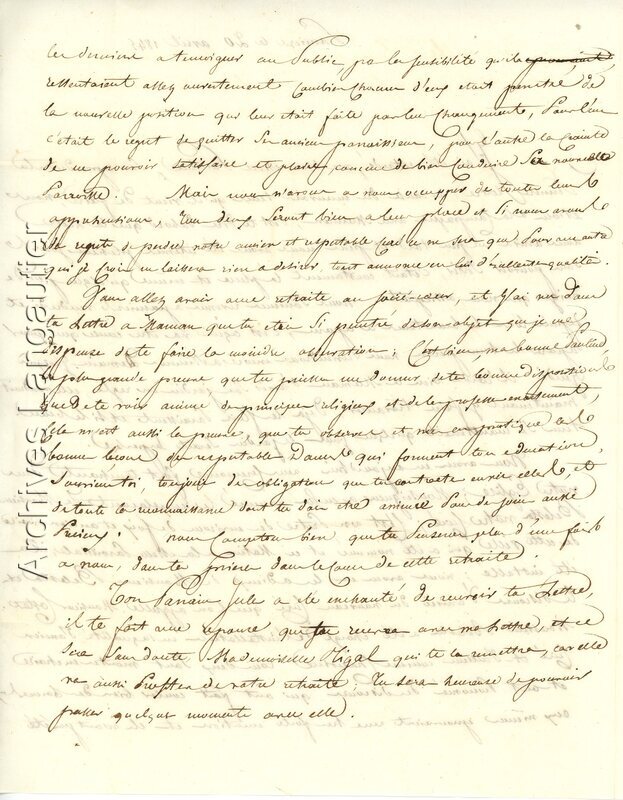 les derniers a temoigner au Public par la sensibilité qu'ils
ressentaient assez ouvertement combien chacun d'eux etait penetré de
la nouvelle position qui leur etait faite par les changements, Pour l'un
c'était le regret de quitter son ancien paroissien, pour l'autre la crainte
de ne pouvoir satisfaire et plaire, comme de bien conduire sa nouvelle
Paroisse. Mais nous n'avons a nous occuper de toutes leurs
apprehentions, Tous deux seront bien a leur place et si nous avons
de regrets de perdre notre ancien et respectable curé ce ne sera que Pour un autre
qui je crois ne laissera rien a desirer, tout annonce en lui d'excellentes qualités.
Vous allez avoir une retraite au sacré-cœur, et j'ai vu dans
ta Lettre a Maman que tu etais si penetrée de son objet que je me
dispense de te faire la moindre observation; C'est bien ma bonne
la plus grande preuve que tu puisses me donner de tes bonnes dispositions
que de te voir animée de principes religieux et de les professer ouvertement,
Elle m'est aussi la preuve, que tu observes et mets en pratique les
bonnes leçons des respectables Dames qui forment ton education,
Souviens toi, toujours des obligations que tu contractes envers elles, et
de toute la reconnaissance dont tu dois etre animée Pour de soins aussi
Precieux. nous comptons bien que tu Penseras plus d'une fois
a nous, dans tes Prieres dans le Cours de cette retraite.
Ton Parrain Jules a été enchanté de recevoir ta Lettre,
il te fait une reponse que tu recevras avec ma Lettre, et ce
sera sans doute, Mademoiselle Rigal qui te la remettra, car elle
va aussi Profiter de votre retraite; Tu seras heureuse de pouvoir
passer quelques moments avec elle.
Archives Langautier